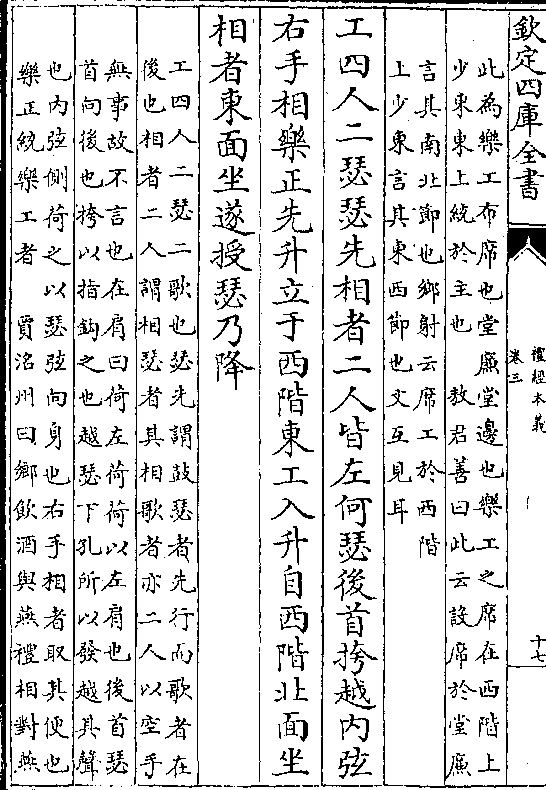 欽定四庫全書
禮經本義
卷三
十七
此為樂工布席也堂廉堂邊也樂工之席在西階上
少東東上統於主也 敖君善曰此云設席於堂廉
言其南北節也鄉射云席工於西階
上少東言其東西節也文互見耳
工四人二瑟瑟先相者二人皆左何瑟後首挎越内弦
右手相樂正先升立于西階東工入升自西階北面坐
相者東面坐遂授瑟乃降
工四人二瑟二歌也瑟先謂鼓瑟者先行而歌者在
後也相者二人謂相瑟者其相歌者亦二人以空手
無事故不言也在肩曰荷左荷荷以左肩也後首瑟
首向後也挎以指鈎之也越瑟下孔所以發越其聲
也内弦側荷之以瑟弦向身也右手相者取其便也
樂正統樂工者 賈洺州曰鄉飲酒與燕禮相對燕